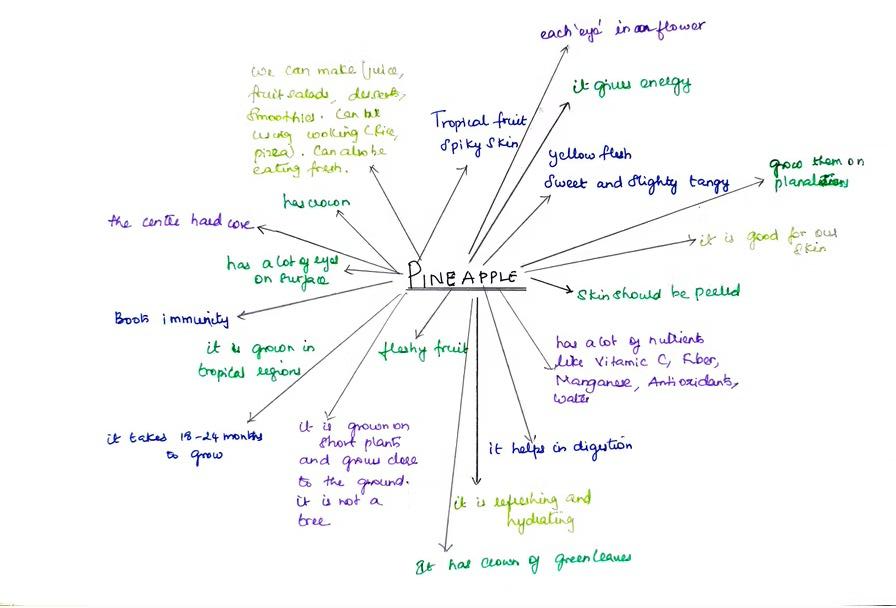 each 'eye' in an flower
we can make (juice,
fruit salads, desserts,
Smoothies. Can be
using cooking (Rice,
pizza). Can also be
eating fresh.
it gives energy
Tropical fruit
Spiky Skin
yellow flesh
Sweet and Slighty tangy
grow them on
has crown
the centre hard core
it is good for our
Skin
has a lot of eyes
on surface
PINEAPPLE
Skin should be peeled
Boots immunity
it is grown in
tropical regions
fleshy fruit
has a lot of nutrients
like Vitamic C, Fiber,
Manganese, Antioxidants,
water
it takes 18-24 months
to grow
it is grown on
Short plants
and grows close
to the ground.
it is not a
tree
it helps in digestion
it is refreshing and
hydrating
It has crown of green leaves